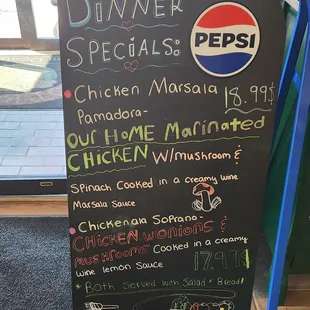 DINNER
SPECIALS:
PEPSI
Chicken Marsala 18.99$
Pamadora-
OUR HOME Marinated
CHICKEN W/mushroom &
Spinach Cooked in a creamy wine
Marsala Sauce
Chicken ala Soprano-
CHICKEN W/onions &
MUSHROOMS Cooked in a creamy
wine lemon Sauce 17.97$
* Both Served with Salad & Bread!